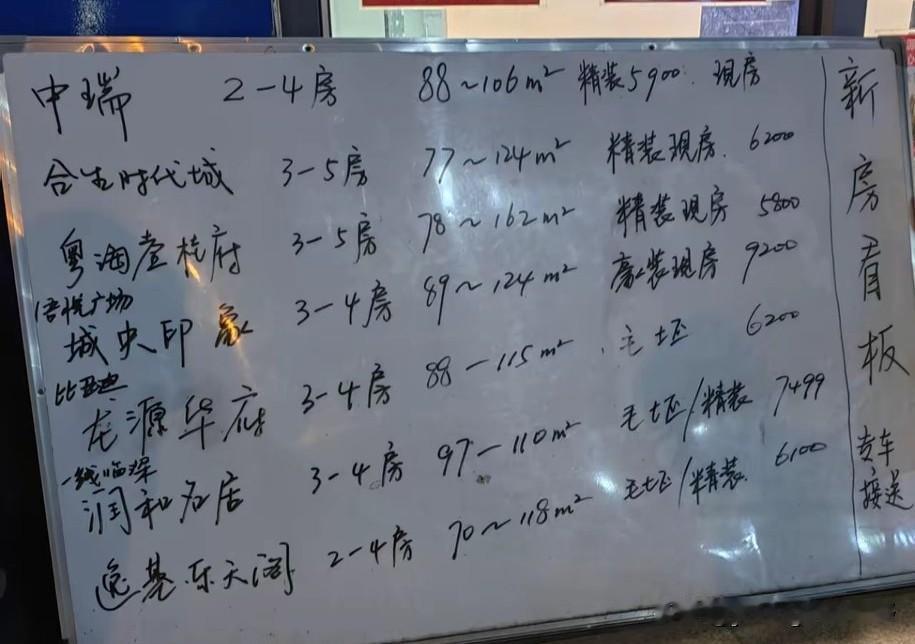 中瑞 2-4房 88~106m² 精装5900. 现房
合生时代城 3-5房 77~124m² 精装现房. 6200
粤海壹桂府 3-5房 78~162m² 精装现房 5800
吾悦广场
城央印象 3-4房 89~124m² 豪装现房 9200
比亚迪
龙源华府 3-4房 88-115m² 毛坯 6200
一线临深
润和名居 3-4房 97-110m² 毛坯/精装 7499
逸基.乐天阁 2-4房 70~118m² 毛坯/精装. 6100
新房看板
专车接送